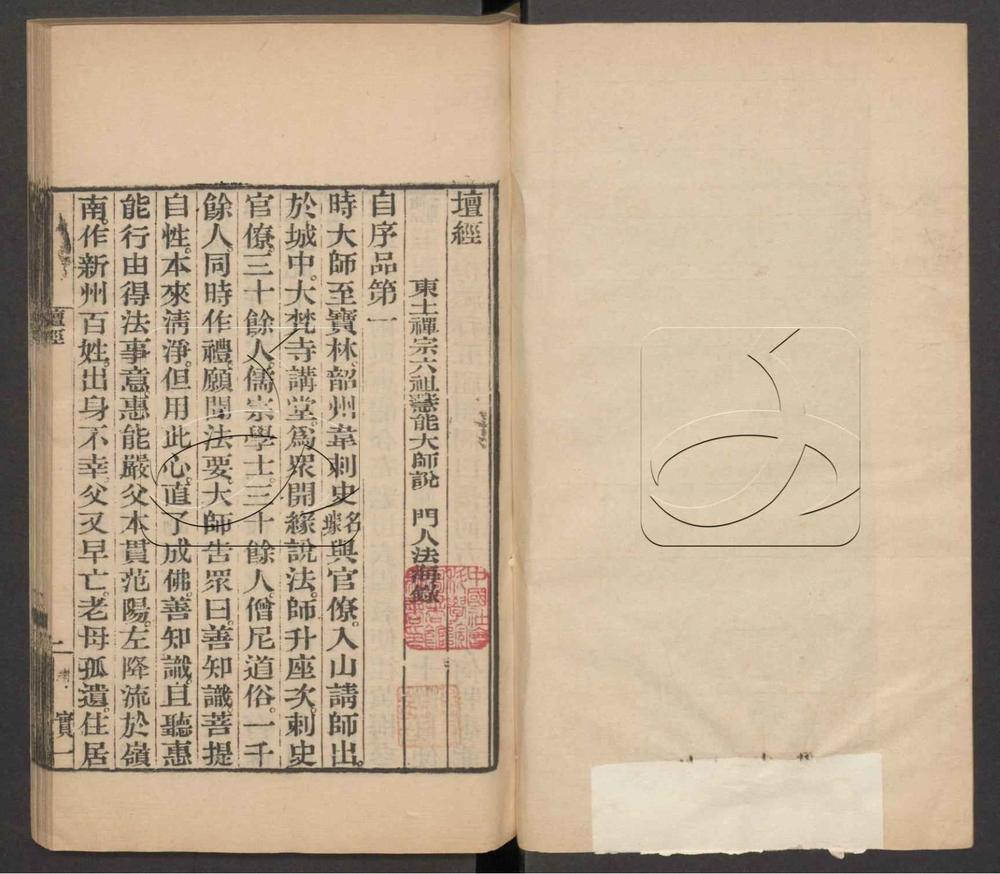 壇經
東土禪宗六祖慧能大師說　門人法海錄
自序品第一
時大師至寶林。韶州韋刺史名璩與官僚。入山請師出。
於城中。大梵寺講堂。爲眾開緣說法。師升座次。刺史
官僚。三十餘人。儒宗學士。三十餘人。僧尼道俗。一千
餘人。同時作禮。願聞法要。大師告眾曰。善知識。菩提
自性。本來清淨。但用此心。直了成佛。善知識。且聽惠
能行由得法事意。惠能嚴父本貫范陽。左降流於嶺
南。作新州百姓。出身不幸。父又早亡。老母孤遺。住居
壇經
一
實一